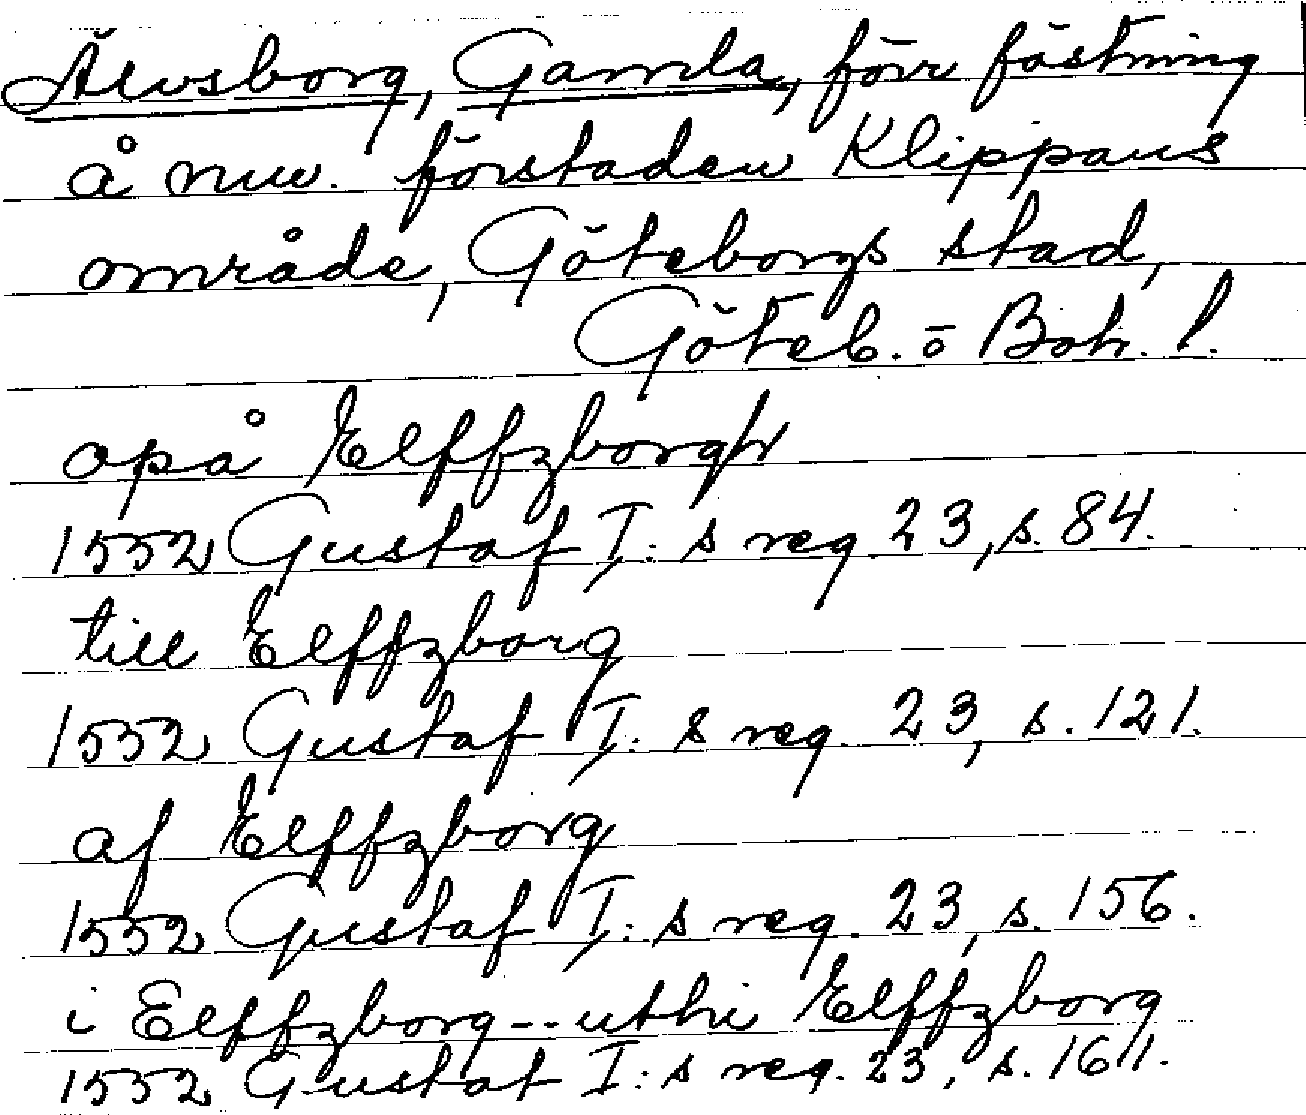 Älvsborg, Gamla, förr fästning
å nuv. förstaden Klippans
område, Göteborgs stad,
Göteb. o Boh. l.
opå Elffzborgh
1552 Gustaf I:s reg. 23, s. 84.
till Elffzborg
1552 Gustaf I:s reg. 23, s. 121.
af Elffzborg
1552 Gustaf I:s reg. 23, s. 156.
i Elffzborg--uthi Elffzborg
1552 Gustaf I:s reg. 23, s. 161.